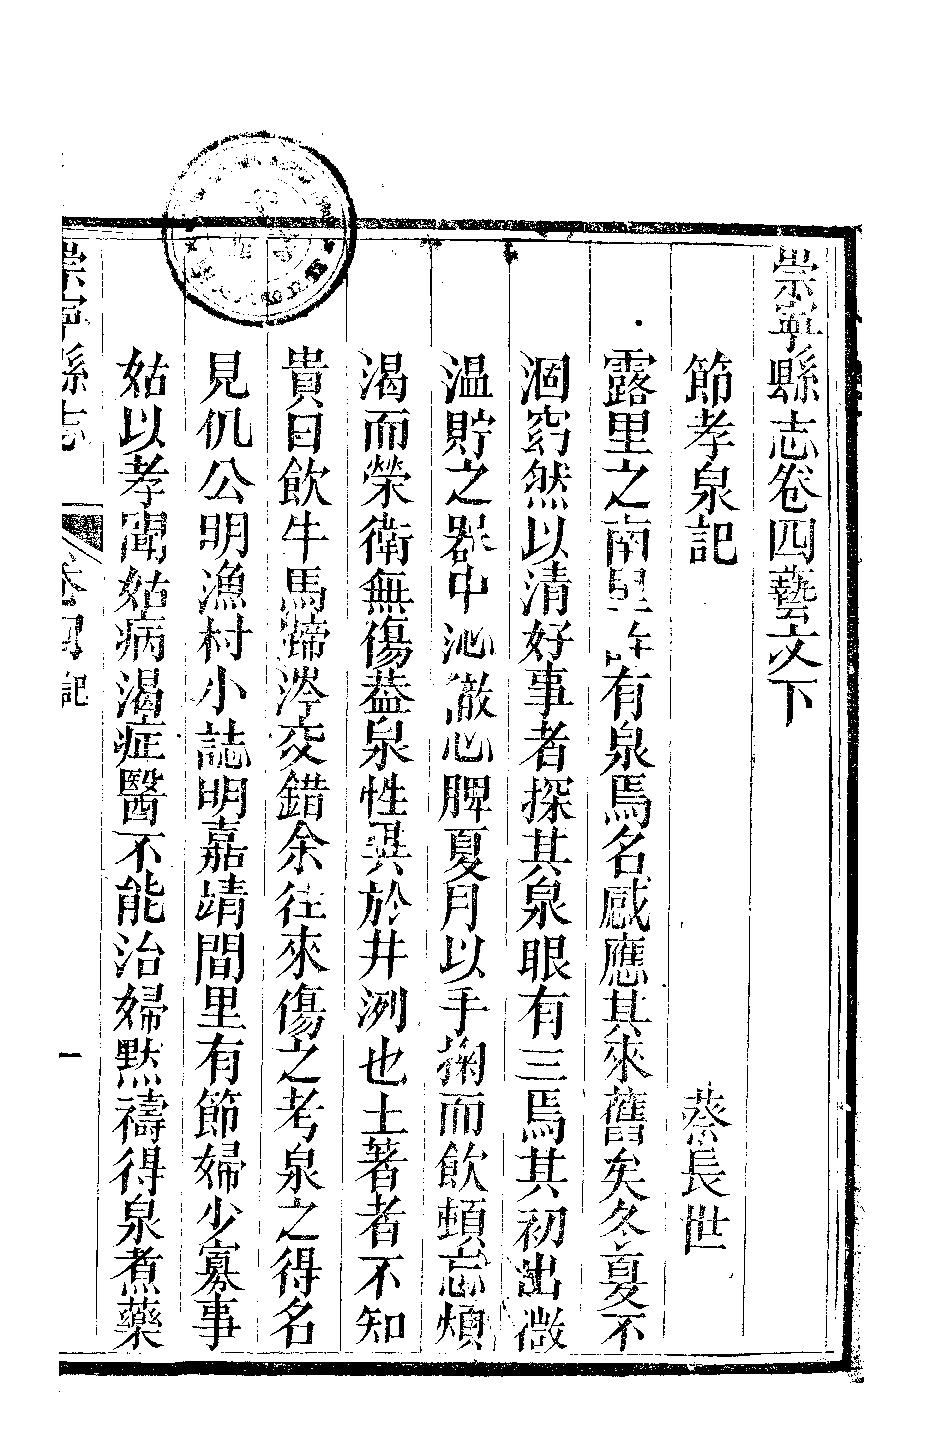 崇寧縣志卷四藝文下
節孝泉記 蔡長世
露里之南里許有泉焉名感應其來舊矣冬夏不
涸窈然以清好事者探其泉眼有三焉其初出微
溫貯之器中沁徹心脾夏月以手掬而飲頓忘煩
渴而榮衛無傷葢泉性異於井冽也土著者不知
貴日飲牛馬蹄涔交錯余往來傷之考泉之得名
見仉公明漁村小誌明嘉靖間里有節婦少寡事
姑以孝聞姑病渴症醫不能治婦默禱得泉煮藥
崇寧縣志 卷四 記 一